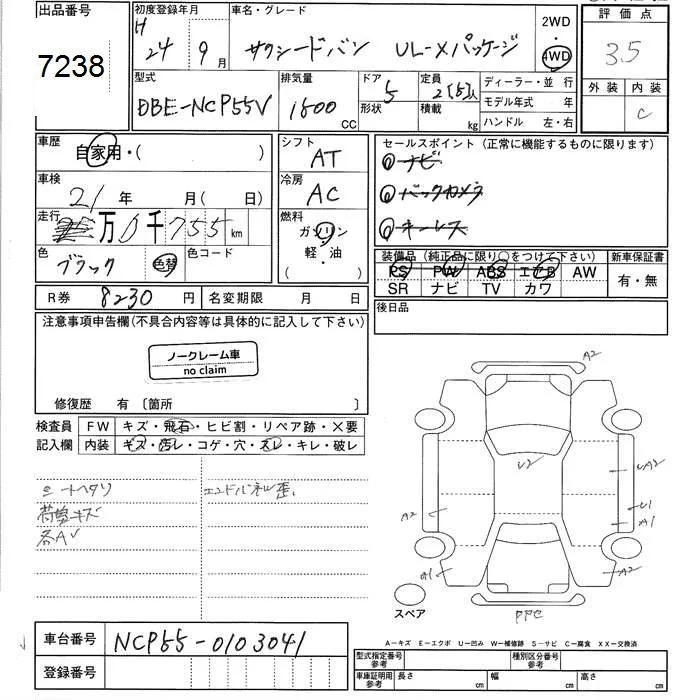 出品番号
7238
初度登録年月
H
24 9月
車名・グレード
サクシードバン UL-Xパッケージ
2WD
・
4WD
評価点
3.5
外装 内装
C
型式
DBE-NCP55V
排気量
1500 CC
ドア
5
形状
定員
2(5)人
積載
kg
ディーラー・並行
モデル年式 年
ハンドル 左・右
車歴
自家用・( )
車検
21年 月( 日)
走行
万0千755km
色
ブラック 色替
色コード
シフト
AT
冷房
AC
燃料
ガソリン
軽・油
( )
セールスポイント(正常に機能するものに限ります)
ナビ
バックカメラ
キーレス
装備品(純正品に限り○をつけて下さい)
PS PW ABS エアB AW
SR ナビ TV カワ
新車保証書
有・無
R券 8230円
名変期限 月 日
後日品
注意事項申告欄(不具合内容等は具体的に記入して下さい)
ノークレーム車
no claim
修復歴 有 〔箇所 〕
検査員
記入欄
FW キズ・飛石・ヒビ割・リペア跡・×要
内装 キズ・汚レ・コゲ・穴・スレ・キレ・破レ
シートヘタリ
荷室キズ
各AU
エンドパネル歪
A2
U2
UA2
U1
A1
A2
A1
A2
スペア
PPC
A-キズ E-エクボ U-凹み W-補修跡 S-サビ C-腐食 XX-交換済
車台番号 NCP55-0103041
登録番号
型式指定番号
参考
種別区分番号
参考
車庫証明用
参考
長さ cm
幅 cm
高さ cm